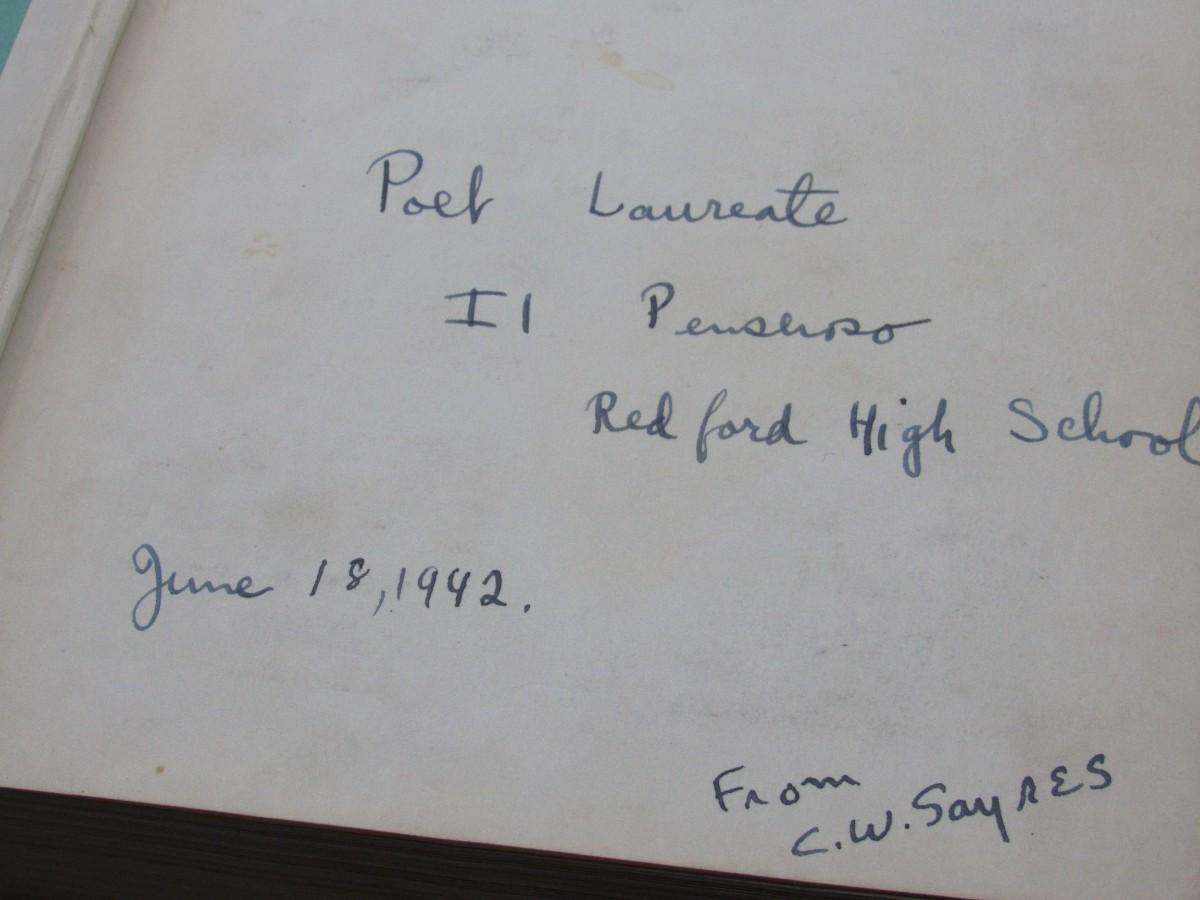 Poet Laureate
Il Penseroso
Redford High School
June 18, 1942.
From
C.W. Sayres